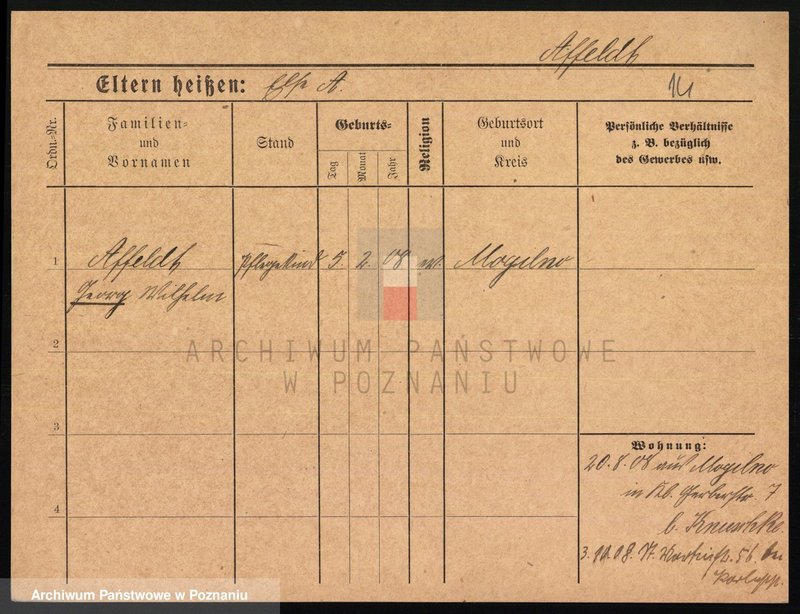 Affeldt
Eltern heißen: Else A.
Ordn.-Nr.
Familien-
und
Vornamen
Stand
Geburts-
Tag
Monat
Jahr
Religion
Geburtsort
und
Kreis
Persönliche Verhältnisse
z. B. bezüglich
des Gewerbes usw.
1 Affeldt Pflegekind 5. 2. 08 ev. Mogilno
Georg Wilhelm
2
ARCHIWUM PAŃSTWOWE
W POZNANIU
3
Wohnung:
20.8.08 aus Mogilno
in Kl. Gerberstr. 7
4
b. Knuschke
3.10.08. St. Martinstr. 56 bei
Archiwum Państwowe w Poznaniu